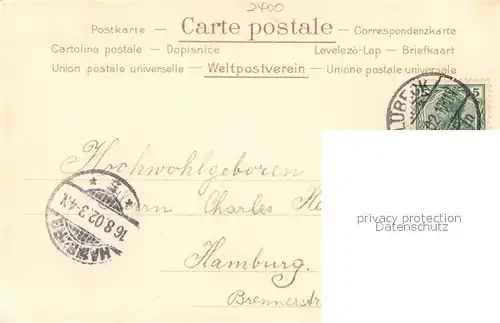 2400
Postkarte — Carte postale — Correspondenzkarte
Cartolina postale — Dopisnice Levelező-Lap — Briefkaart
Union postale universelle — Weltpostverein — Unione postale universale
LÜBECK
5
Hochwohlgeboren
Herrn Charles
Hamburg.
16.8.02.3-4.N.
HAMBURG
privacy protection
datenschutz